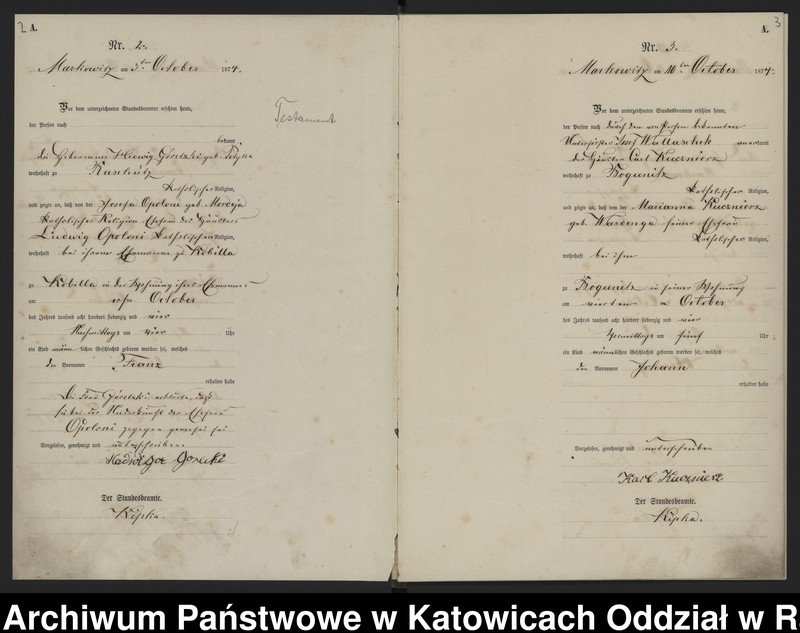 2
A.
Nr. 2.
Markowitz am 5ten October 1874.
Vor dem unterzeichneten Standesbeamten erschien heute,
der Person nach
Testament
bekannt,
die Hebamme Hedwig Goretzki geb.
wohnhaft zu Raschütz
katholischer Religion,
und zeigte an, daß von der Josefa Opoloni geb.
katholischer Religion Ehefrau des Häuslers
Ludwig Opoloni katholischer Religion,
wohnhaft bei ihrem Ehemanne zu Kobilla
zu Kobilla in der Wohnung ihres Ehemannes
am October
des Jahres tausend acht hundert siebenzig und vier
Nachmittags um vier Uhr
ein Kind männlichen Geschlechts geboren worden sei, welches
den Vornamen Franz
erhalten habe
Die Frau Goretzki erklärte, daß
sie bei der Niederkunft der Ehefrau
Opoloni zugegen gewesen sei
Vorgelesen, genehmigt und unterschrieben
Gorecki
Der Standesbeamte.
Kipka.
3
A.
Nr. 3.
Markowitz am 10ten October 1874.
Vor dem unterzeichneten Standesbeamten erschien heute,
der Person nach durch den von Person bekannten
Josef Wallaschek anerkannt
der Häusler Carl Kucznierz
wohnhaft zu Bogunitz
katholischer Religion,
und zeigte an, daß von der Marianna Kucznierz
geb. Wardenga seiner Ehefrau
katholischer Religion,
wohnhaft bei ihm
zu Bogunitz in seiner Wohnung
am vierten October
des Jahres tausend acht hundert siebenzig und vier
Vormittags um fünf Uhr
ein Kind männlichen Geschlechts geboren worden sei, welches
den Vornamen Johann
erhalten habe
Vorgelesen, genehmigt und unterschrieben
Karl Kucznierz
Der Standesbeamte.
Kipka.
Archiwum Państwowe w Katowicach Oddział w R